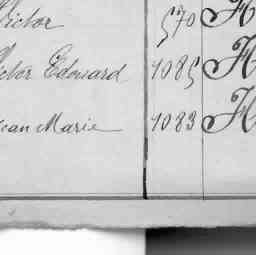 Victor 570 H
Victor Edouard 1085 H
Jean Marie 1083 H